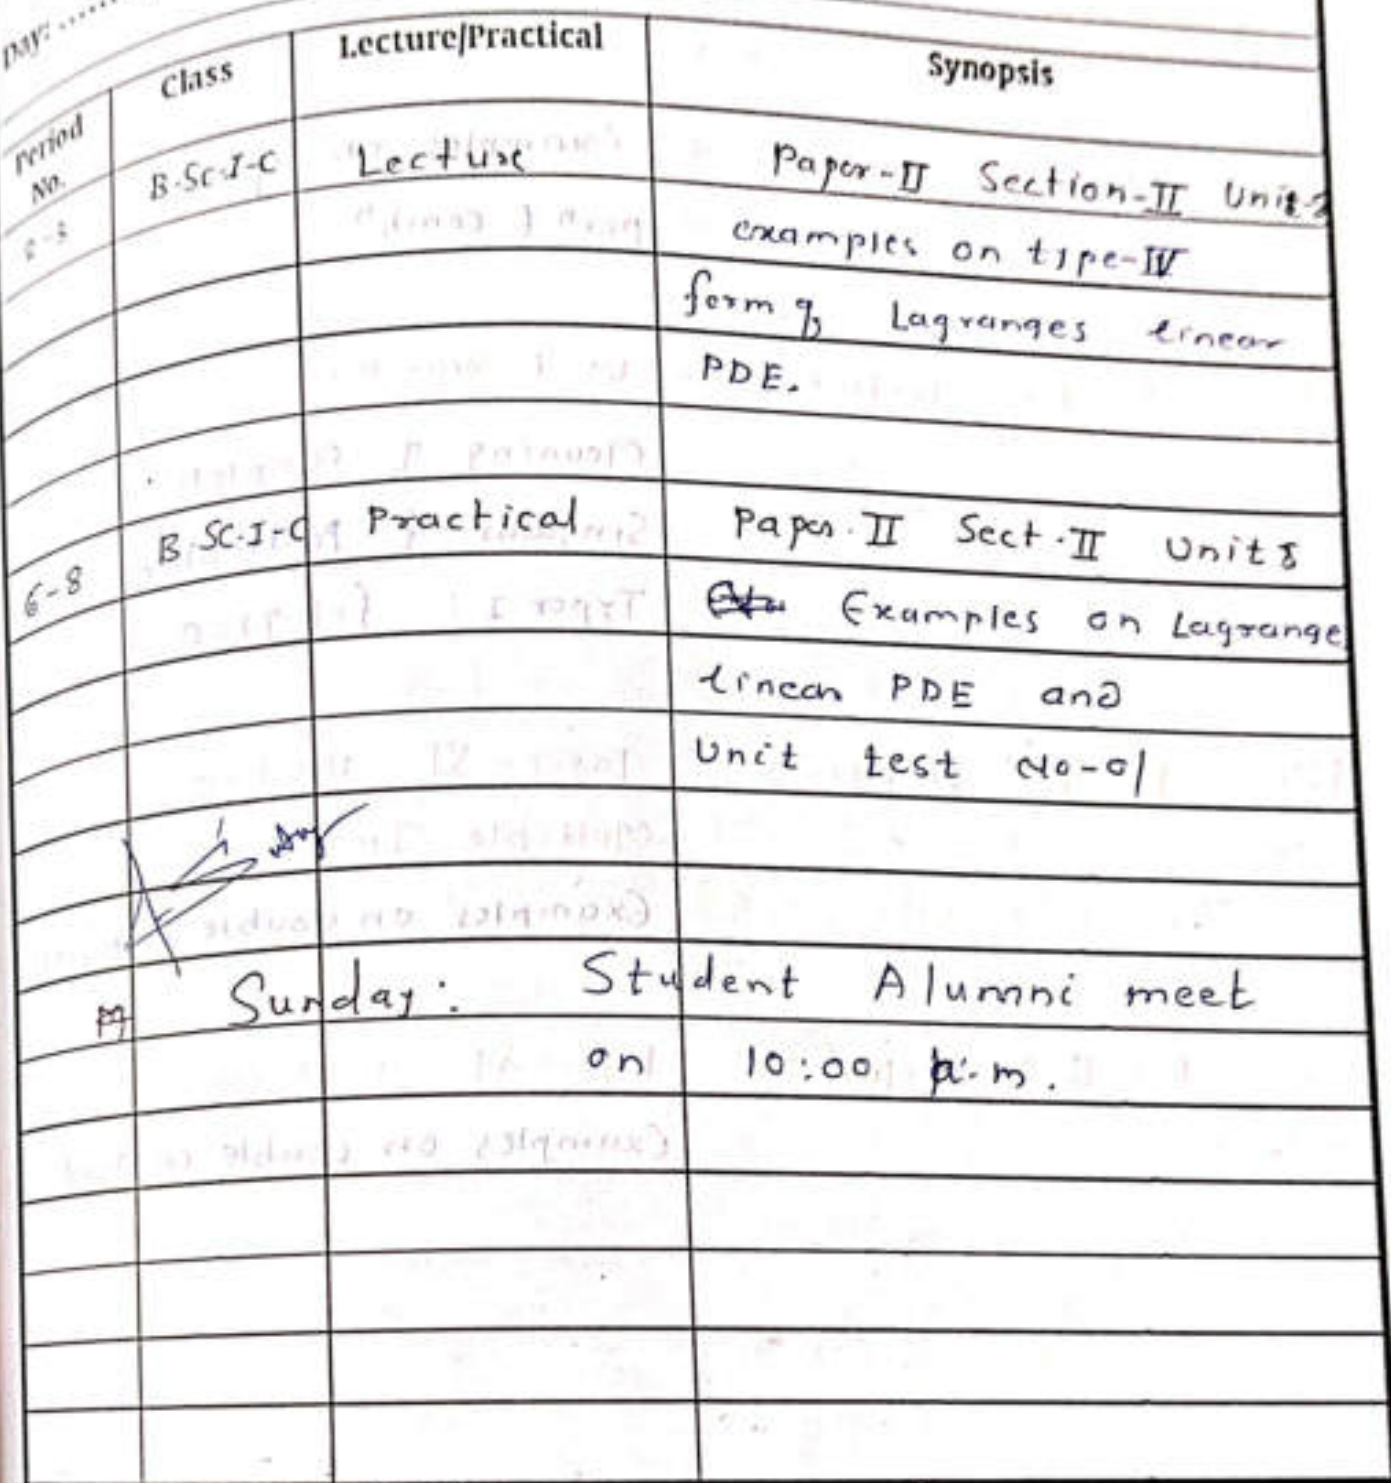 Day: ......
Period No. Class Lecture/Practical Synopsis
B.Sc-I-C Lecture Paper-II Section-II Unit-
examples on type-IV
form of Lagranges linear
PDE.
6-8 B.SC-I-C Practical Paper.II Sect.II Unit
Examples on Lagrange
linear PDE and
Unit test No-01
Sunday: Student Alumni meet
on 10:00 a.m.